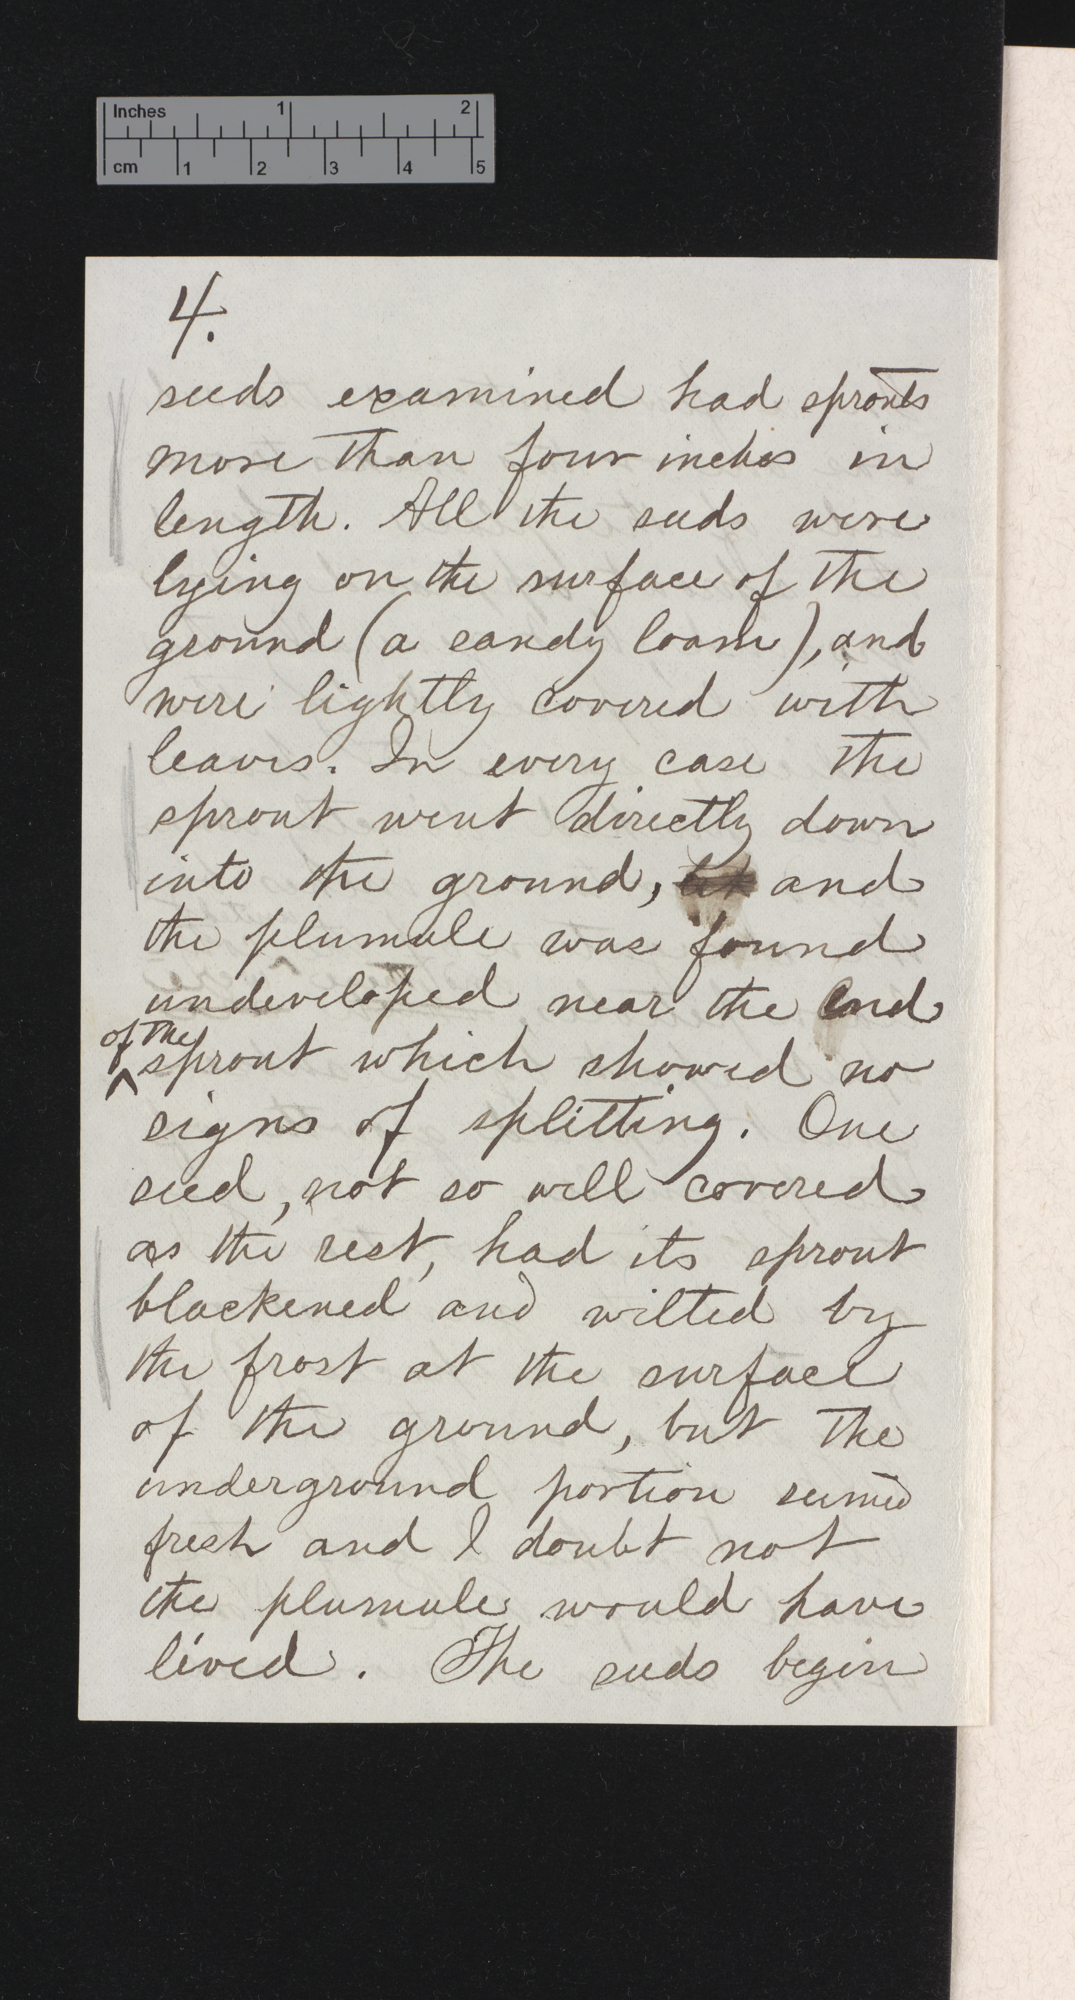 Inches 1 2
cm 1 2 3 4 5
4.
seeds examined had sprouts
more than four inches in
length. All the seeds were
lying on the surface of the
ground (a sandy loam), and
were lightly covered with
leaves. In every case the
sprout went directly down
into the ground, and
the plumule was found
undeveloped near the end
of the
sprout which showed no
signs of splitting. One
seed, not so well covered
as the rest, had its sprout
blackened and wilted by
the frost at the surface
of the ground, but the
underground portion seemed
fresh and I doubt not
the plumule would have
lived. The seeds begin